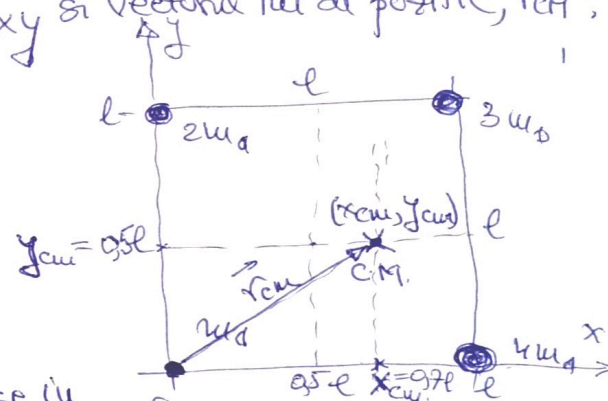 xy și vectorul lui de poziție, r⃗cm,
y
l
l-
2m₀
3m₀
(xcm, ycm)
ycm = 0,5l
l
C.M.
r⃗cm
m₀
x
4m₀
0,5l
xcm = 0,7l
l